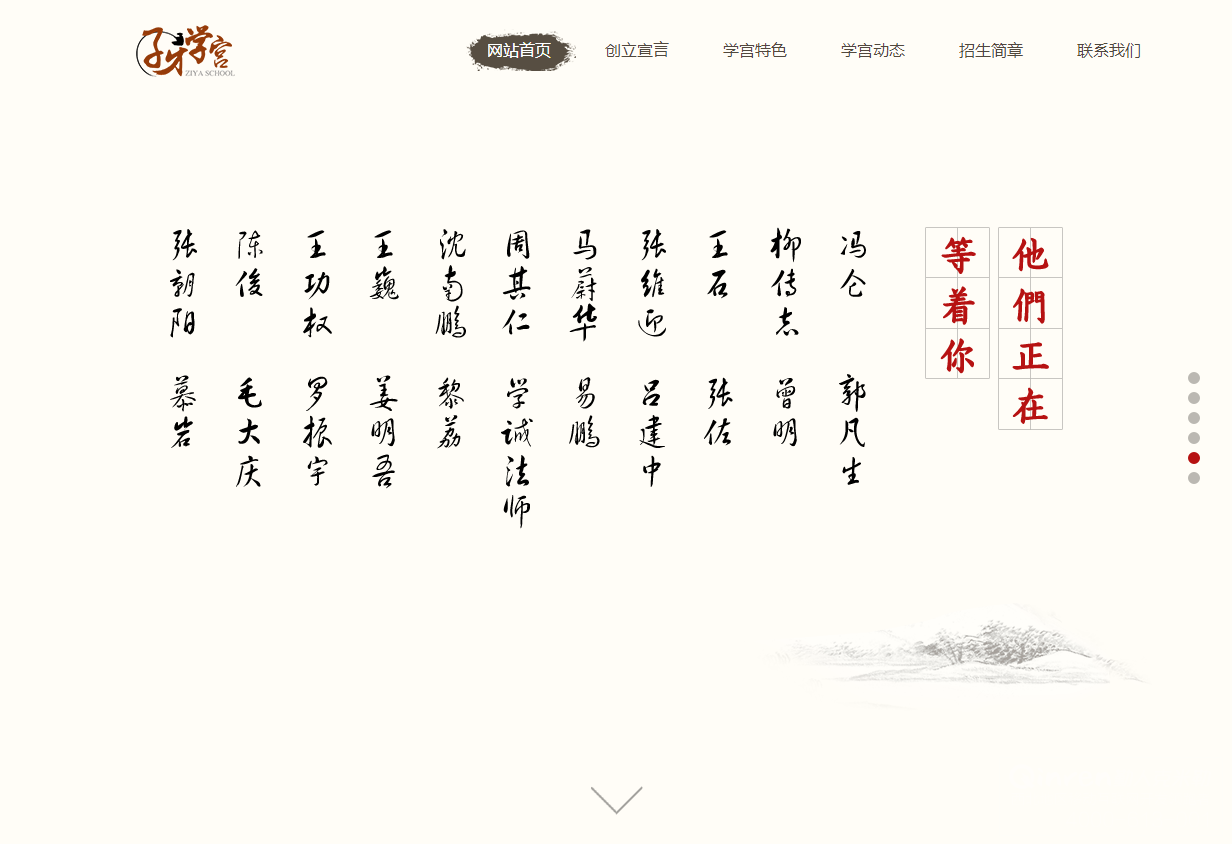 子牙学宫
ZIYA SCHOOL
网站首页
创立宣言
学宫特色
学宫动态
招生简章
联系我们
他們正在
等着你
冯仑
柳传志
王石
张维迎
马蔚华
周其仁
沈南鹏
王巍
王功权
陈俊
张朝阳
郭凡生
曾明
张佐
吕建中
易鹏
学诚法师
黎荔
姜明吾
罗振宇
毛大庆
慕岩